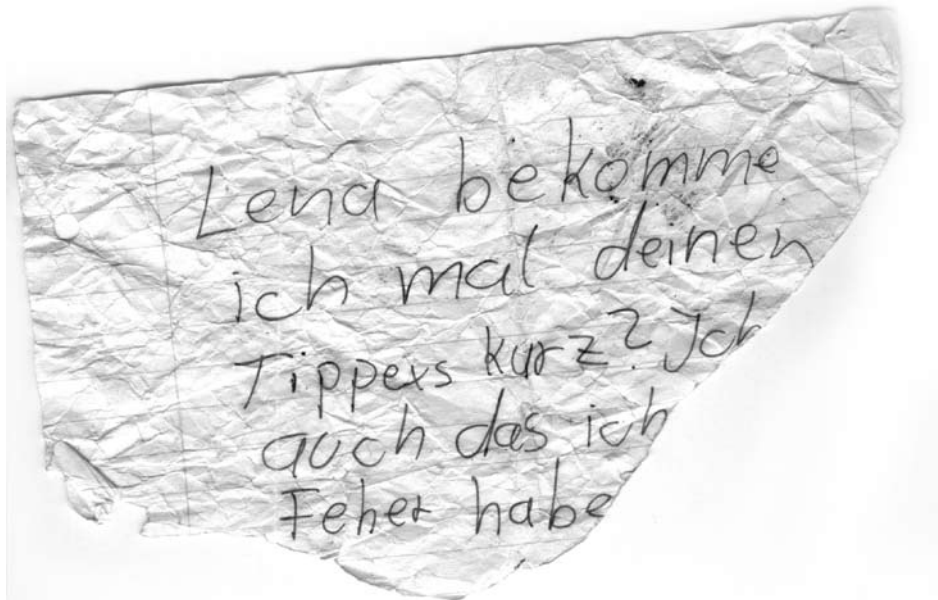 Lena bekomme
ich mal deinen
Tippexs kurz? Ich
auch das ich
Feher habe